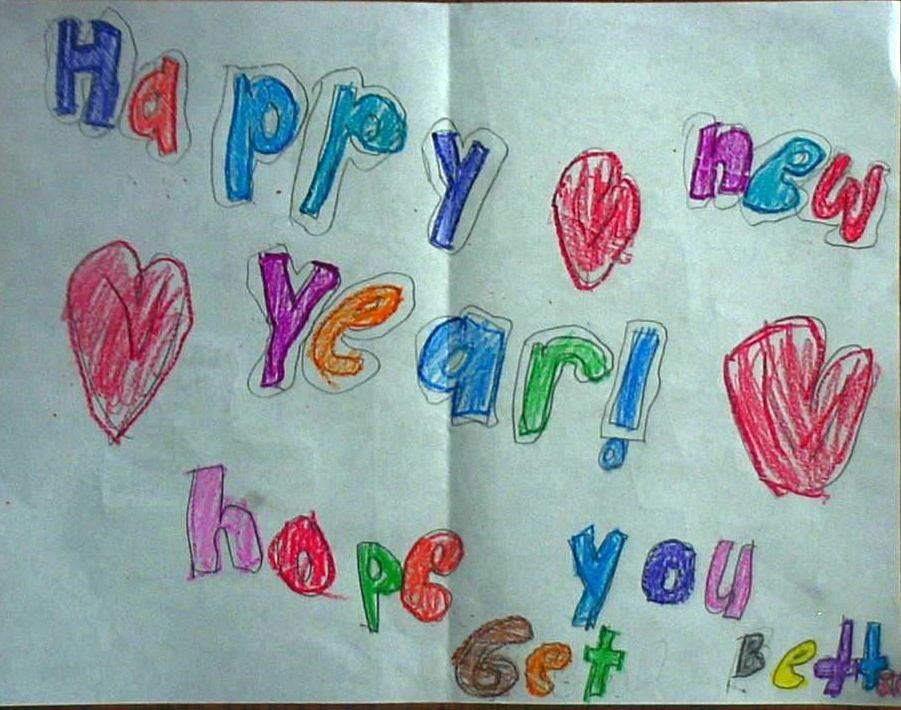 Happy new
Year!
hope you
Get Better